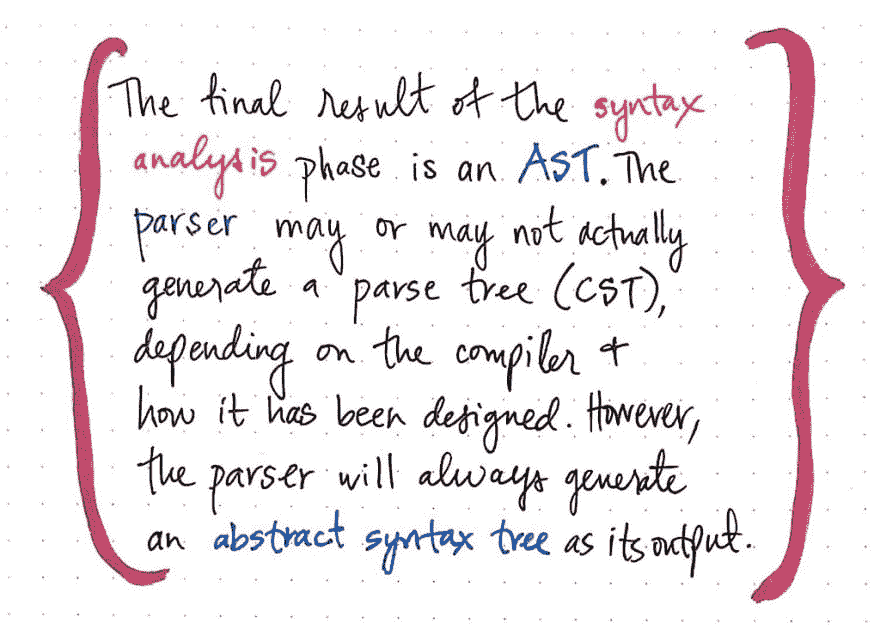 The final result of the syntax
analysis phase is an AST. The
parser may or may not actually
generate a parse tree (CST),
depending on the compiler &
how it has been designed. However,
the parser will always generate
an abstract syntax tree as its output.